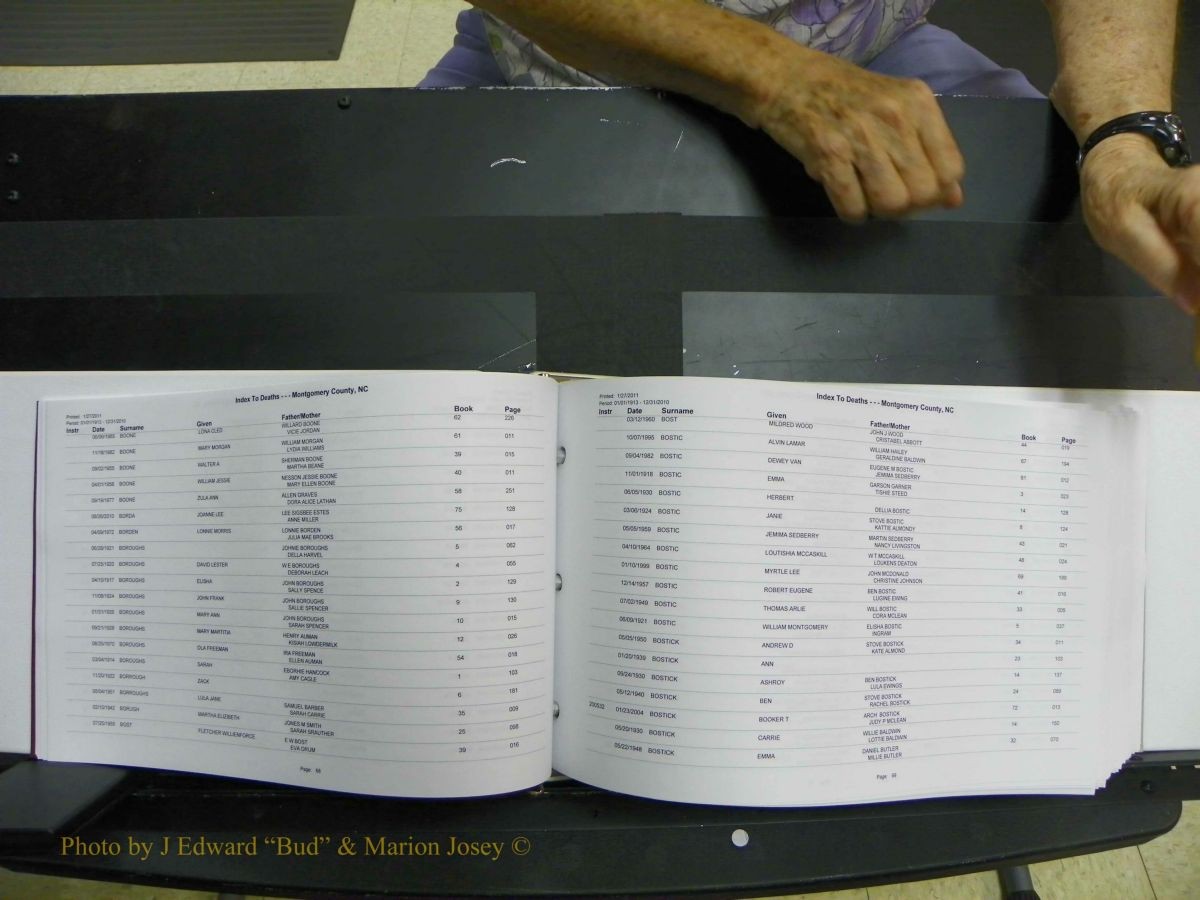 Index To Deaths - - - Montgomery County, NC
Printed: 1/27/2011
Period: 01/01/1913 - 12/31/2010
Instr Date Surname Given Father/Mother Book Page
BOONE LONA CLEO WILLARD BOONE 62 226
VICIE JORDAN
BOONE MARY MORGAN WILLIAM MORGAN 61 011
LYDIA WILLIAMS
BOONE WALTER A SHERMAN BOONE 39 015
MARTHA BEANE
BOONE WILLIAM JESSIE NESSON JESSIE BOONE 40 011
MARY ELLEN BOONE
BOONE ZULA ANN ALLEN GRAVES 58 251
DORA ALICE LATHAN
BORDA JOANNE LEE LEE SIGSBEE ESTES 75 128
ANNE MILLER
BORDEN LONNIE MORRIS LONNIE BORDEN 56 017
JULIA MAE BROOKS
BOROUGHS JOHNIE BOROUGHS 5 062
DELLA HARVEL
BOROUGHS DAVID LESTER W E BOROUGHS 4 055
DEBORAH LEACH
BOROUGHS ELISHA JOHN BOROUGHS 2 129
SALLY SPENCE
BOROUGHS JOHN FRANK JOHN BOROUGHS 9 130
SALLIE SPENCER
BOROUGHS MARY ANN JOHN BOROUGHS 10 015
SARAH SPENCER
BOROUGHS MARY MARTITIA HENRY AUMAN 12 026
KISIAH LOWDERMILK
BOROUGHS OLA FREEMAN IRA FREEMAN 54 018
ELLEN AUMAN
BOROUGHS SARAH EBORHIE HANCOCK 1 103
AMY CAGLE
BOROUGH ZACK 6 181
BORROUGHS LULA JANE SAMUEL BARBER 35 009
SARAH CARRIE
BORUGH MARTHA ELIZIBETH JONES M SMITH 25 098
SARAH SRAUTHER
BOST FLETCHER WILLIENFORCE E W BOST 39 016
EVA DRUM
Page: 68
Index To Deaths - - - Montgomery County, NC
Printed: 1/27/2011
Period: 01/01/1913 - 12/31/2010
Instr Date Surname Given Father/Mother Book Page
03/12/1960 BOST MILDRED WOOD JOHN J WOOD 44 019
CRISTABEL ABBOTT
10/07/1995 BOSTIC ALVIN LAMAR WILLIAM HAILEY 67 194
GERALDINE BALDWIN
09/04/1982 BOSTIC DEWEY VAN EUGENE M BOSTIC 61 012
JEMIMA SEDBERRY
11/01/1918 BOSTIC EMMA GARSON GARNER 3 023
TISHIE STEED
06/05/1930 BOSTIC HERBERT DELLIA BOSTIC 14 128
03/06/1924 BOSTIC JANIE STOVE BOSTIC 8 124
KATTIE ALMONDY
05/05/1959 BOSTIC JEMIMA SEDBERRY MARTIN SEDBERRY 43 021
NANCY LIVINGSTON
04/10/1964 BOSTIC LOUTISHIA MCCASKILL W T MCCASKILL 48 024
LOUKENS DEATON
01/10/1999 BOSTIC MYRTLE LEE JOHN MCDONALD 69 188
CHRISTINE JOHNSON
12/14/1957 BOSTIC ROBERT EUGENE BEN BOSTIC 41 016
LUGINE EWING
07/02/1949 BOSTIC THOMAS ARLIE WILL BOSTIC 33 005
CORA MCLEAN
06/09/1921 BOSTIC WILLIAM MONTGOMERY ELISHA BOSTIC 5 037
INGRAM
05/05/1950 BOSTICK ANDREW D STOVE BOSTICK 34 011
KATE ALMOND
01/20/1939 BOSTICK ANN 23 103
09/24/1930 BOSTICK ASHROY BEN BOSTICK 14 137
LULA EWINGS
05/12/1940 BOSTICK BEN STOVE BOSTICK 24 089
RACHEL BOSTICK
01/23/2004 BOSTICK BOOKER T ARCH BOSTICK 72 013
JUDY P MCLEAN
05/20/1930 BOSTICK CARRIE WILLIE BALDWIN 14 150
LOTTIE BALDWIN
05/22/1948 BOSTICK EMMA DANIEL BUTLER 32 070
MILLIE BUTLER
Page: 69
Photo by J Edward “Bud” & Marion Josey ©